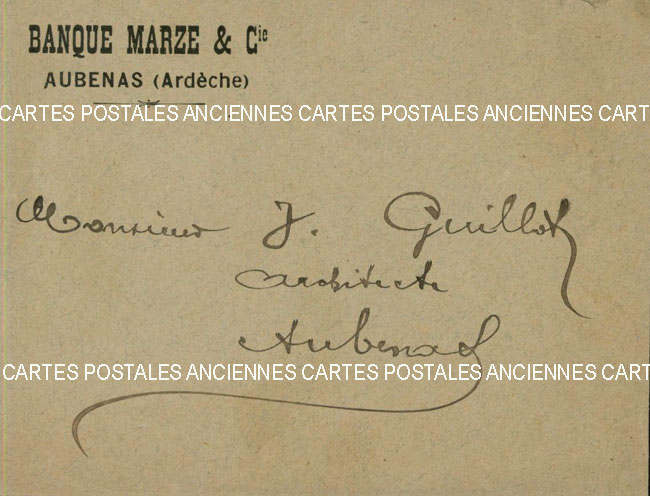 BANQUE MARZE & Cie
AUBENAS (Ardèche)
CARTES POSTALES ANCIENNES CARTES POSTALES ANCIENNES CART
Monsieur J. Guillot
architecte
Aubenas
CARTES POSTALES ANCIENNES CARTES POSTALES ANCIENNES CART